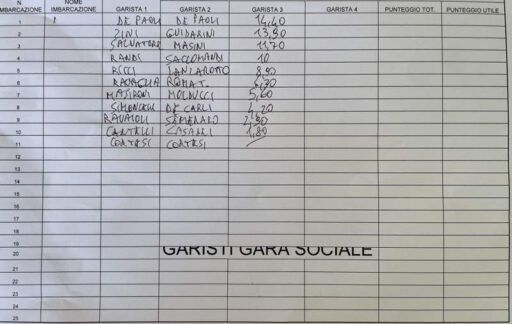 N. IMBARCAZIONE NOME IMBARCAZIONE GARISTA 1 GARISTA 2 GARISTA 3 GARISTA 4 PUNTEGGIO TOT. PUNTEGGIO UTILE
1 DE PAOLI DE PAOLI 14,40
2 ZINI GUIDARINI 13,90
3 SALVATORE MASINI 11,70
4 RANDI SACCOMANDI 10
5 RICCI LANZAROTTO 8,90
6 RAVAGLIA ROMA T.
7 MOLDUCCI 5,60
8 SIMONCELLI DE CARLI 4,20
9 RAVAIOLI SEMERARO 2,90
10 CANTELLI CASADEI 1,80
11 CORTESI CORTESI
12
13
14
15
16
17
18
19
20 GARISTI GARA SOCIALE
21
22
23
24
25